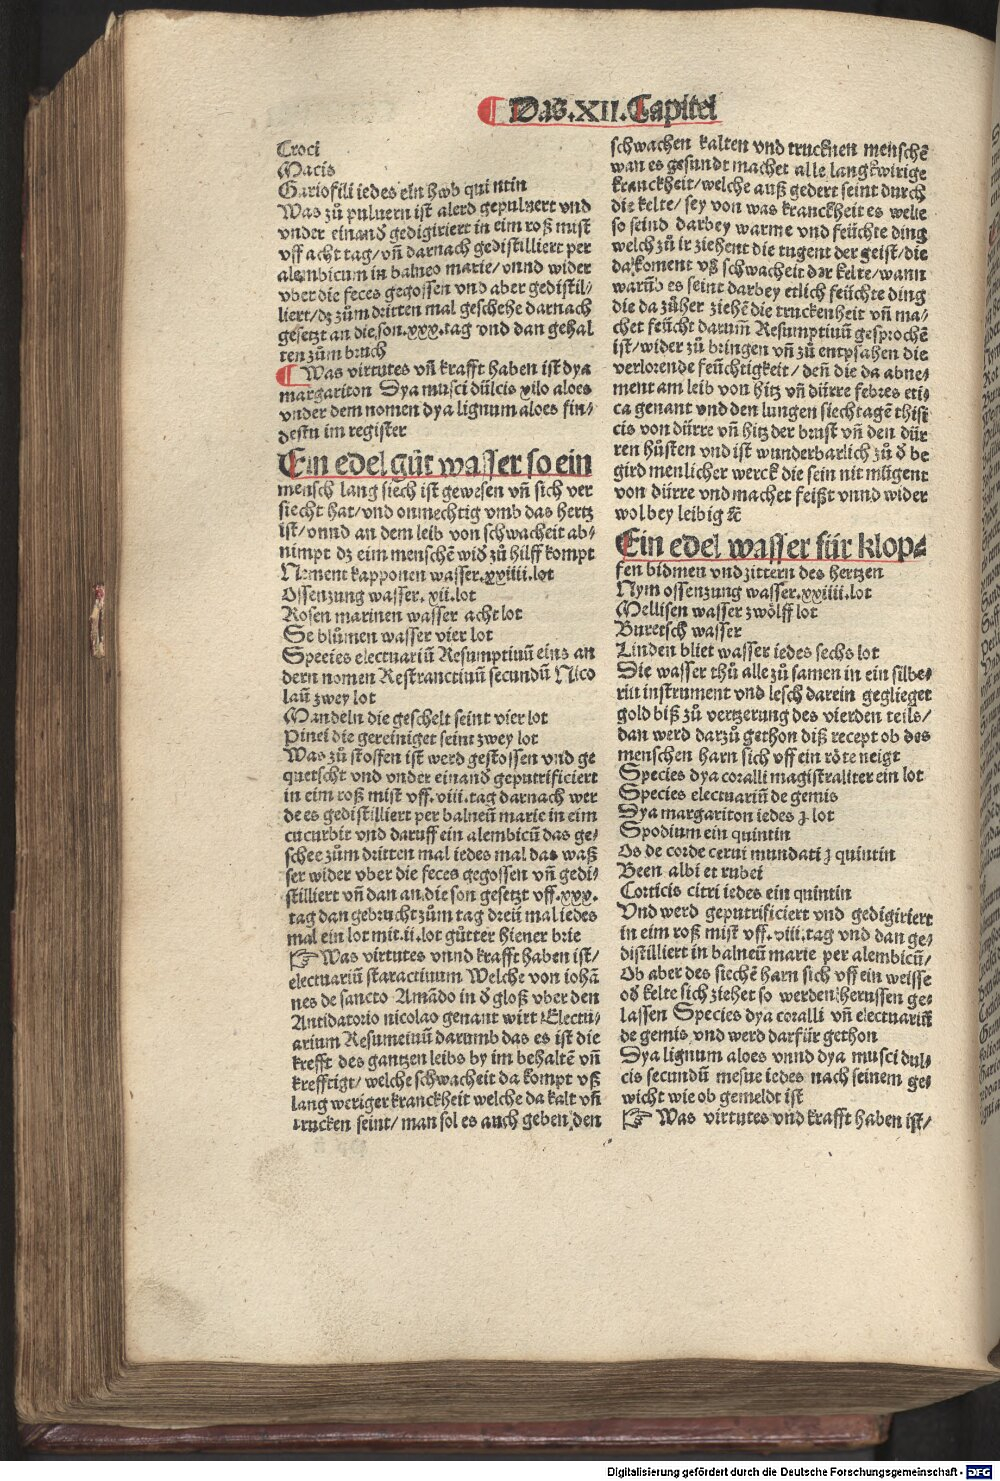 ¶ Das.XII.Capitel
Croci
Macis
Gariofili iedes ein halb quintin
Was zů puluern ist alerd gepuluert vnd
vnder einand gedigiriert in eim roß mist
vff acht tag/ vn̄ darnach gedistilliert per
alembicum in balneo marie/ vnnd wider
vber die feces gegossen vnd aber gedistil/
liert/ dz zům dritten mal geschehe darnach
gesetzt an die son.xxx.tag vnd dan gehal
ten zům bruch
¶ Was virtutes vn̄ krafft haben ist dya
margariton Dya musci dülcis xilo aloes
vnder dem nomen dya lignum aloes fin/
destu im register
Ein edel gůt wasser so ein
mensch lang siech ist gewesen vn̄ sich ver
siecht hat/ vnd onmechtig vmb das hertz
ist/ vnnd an dem leib von schwacheit ab/
nimpt dz eim menschē wid zů hilff kompt
Nement kapponen wasser.xxiiii.lot
Ossenzung wasser.xii.lot
Rosen marinen wasser acht lot
Se blůmen wasser vier lot
Species electuariū Resumptiuū eins an
dern nomen Restranctiuū secundū Nico
laū zwey lot
Mandeln die geschelt seint vier lot
Pinei die gereiniget seint zwey lot
Was zů stossen ist werd gestossen vnd ge
quetscht vnd vnder einand geputrificiert
in eim roß mist vff.viii.tag darnach wer
de es gedistilliert per balneū marie in eim
cucurbit vnd daruff ein alembicū das ge/
schee zům dritten mal iedes mal das waß
ser wider vber die feces gegossen vn̄ gedi/
stilliert vn̄ dan an die son gesetzt vff.xxx.
tag dan gebrucht zům tag dreü mal iedes
mal ein lot mit.ii.lot gůtter hiener brie
☞ Was virtutes vnnd krafft haben ist/
electuariū staractiuum Welche von iohā
nes de sancto Amādo in d gloß vber den
Antidatorio nicolao genant wirt Electu/
arium Resumeiuū darumb das es ist die
krefft des gantzen leibs by im behaltē vn̄
krefftigt/ welche schwacheit da kompt vß
lang weriger kranckheit welche da kalt vn̄
trucken seint/ man sol es auch geben den
schwachen kalten vnd trucknen menschē
wan es gesundt machet alle langkwirige
kranckheit/ welche auß gedert seint durch
die kelte/ sey von was kranckheit es welle
so seind darbey warme vnd feüchte ding
welch zů ir ziehent die tugent der geist/ die
da koment vß schwacheit der kelte/ wann
warūb es seint darbey etlich feüchte ding
die da zůher ziehē die truckenheit vn̄ ma/
chet feücht darum̄ Resumptiuū gesprochē
ist/ wider zů bringen vn̄ zů entpsahen die
verlorende feüchtigkeit/ den̄ die da abne/
ment am leib von hitz vn̄ dürre febres eti/
ca genant vnd den lungen siechtagē thisi
cis von dürre vn̄ hitz der brust vn̄ den dür
ren hůsten vnd ist wunderbarlich zů d be
gird menlicher werck die sein nit mügent
von dürre vnd machet feißt vnnd wider
wol bey leibig ⁊c̄
Ein edel wasser für klop/
fen bidmen vnd zittern des hertzen
Nym ossenzung wasser.xxiiii.lot
Mellisen wasser zwölff lot
Buretsch wasser
Linden bliet wasser iedes sechs lot
Die wasser thů alle zů samen in ein silbe/
rin instrument vnd lesch darein geglieget
gold biß zů vertzerung des vierden teils/
dan werd darzů gethon diß recept ob des
menschen harn sich vff ein röte neigt
Species dya coralli magistraliter ein lot
Species electuariū de gemis
Dya margariton iedes ʒ lot
Spodium ein quintin
Os de corde cerui mundati ʒ quintin
Been albi et rubei
Corticis citri iedes ein quintin
Vnd werd geputrificiert vnd gedigiriert
in eim roß mist vff.viii.tag vnd dan ge/
distilliert in balneū marie per alembicū/
Ob aber des siechē harn sich vff ein weisse
od kelte sich ziehet so werden herussen ge/
lassen Species dya coralli vn̄ electuariū
de gemis vnd werd darfür gethon
Dya lignum aloes vnnd dya musci dul/
cis secundū mesue iedes nach seinem ge/
wicht wie ob gemeldt ist
☞ Was virtutes vnd krafft haben ist/
Digitalisierung gefördert durch die Deutsche Forschungsgemeinschaft - DFG